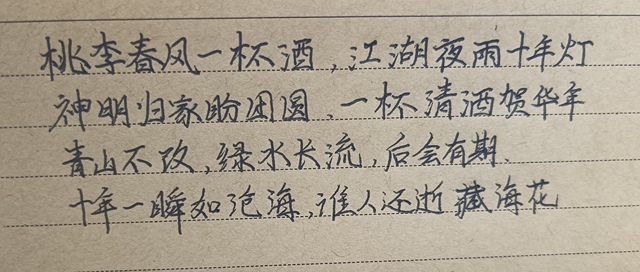 桃李春风一杯酒，江湖夜雨十年灯
神明归家盼团圆、一杯清酒贺华年
青山不改，绿水长流，后会有期.
十年一瞬如沧海，谁人还逝藏海花